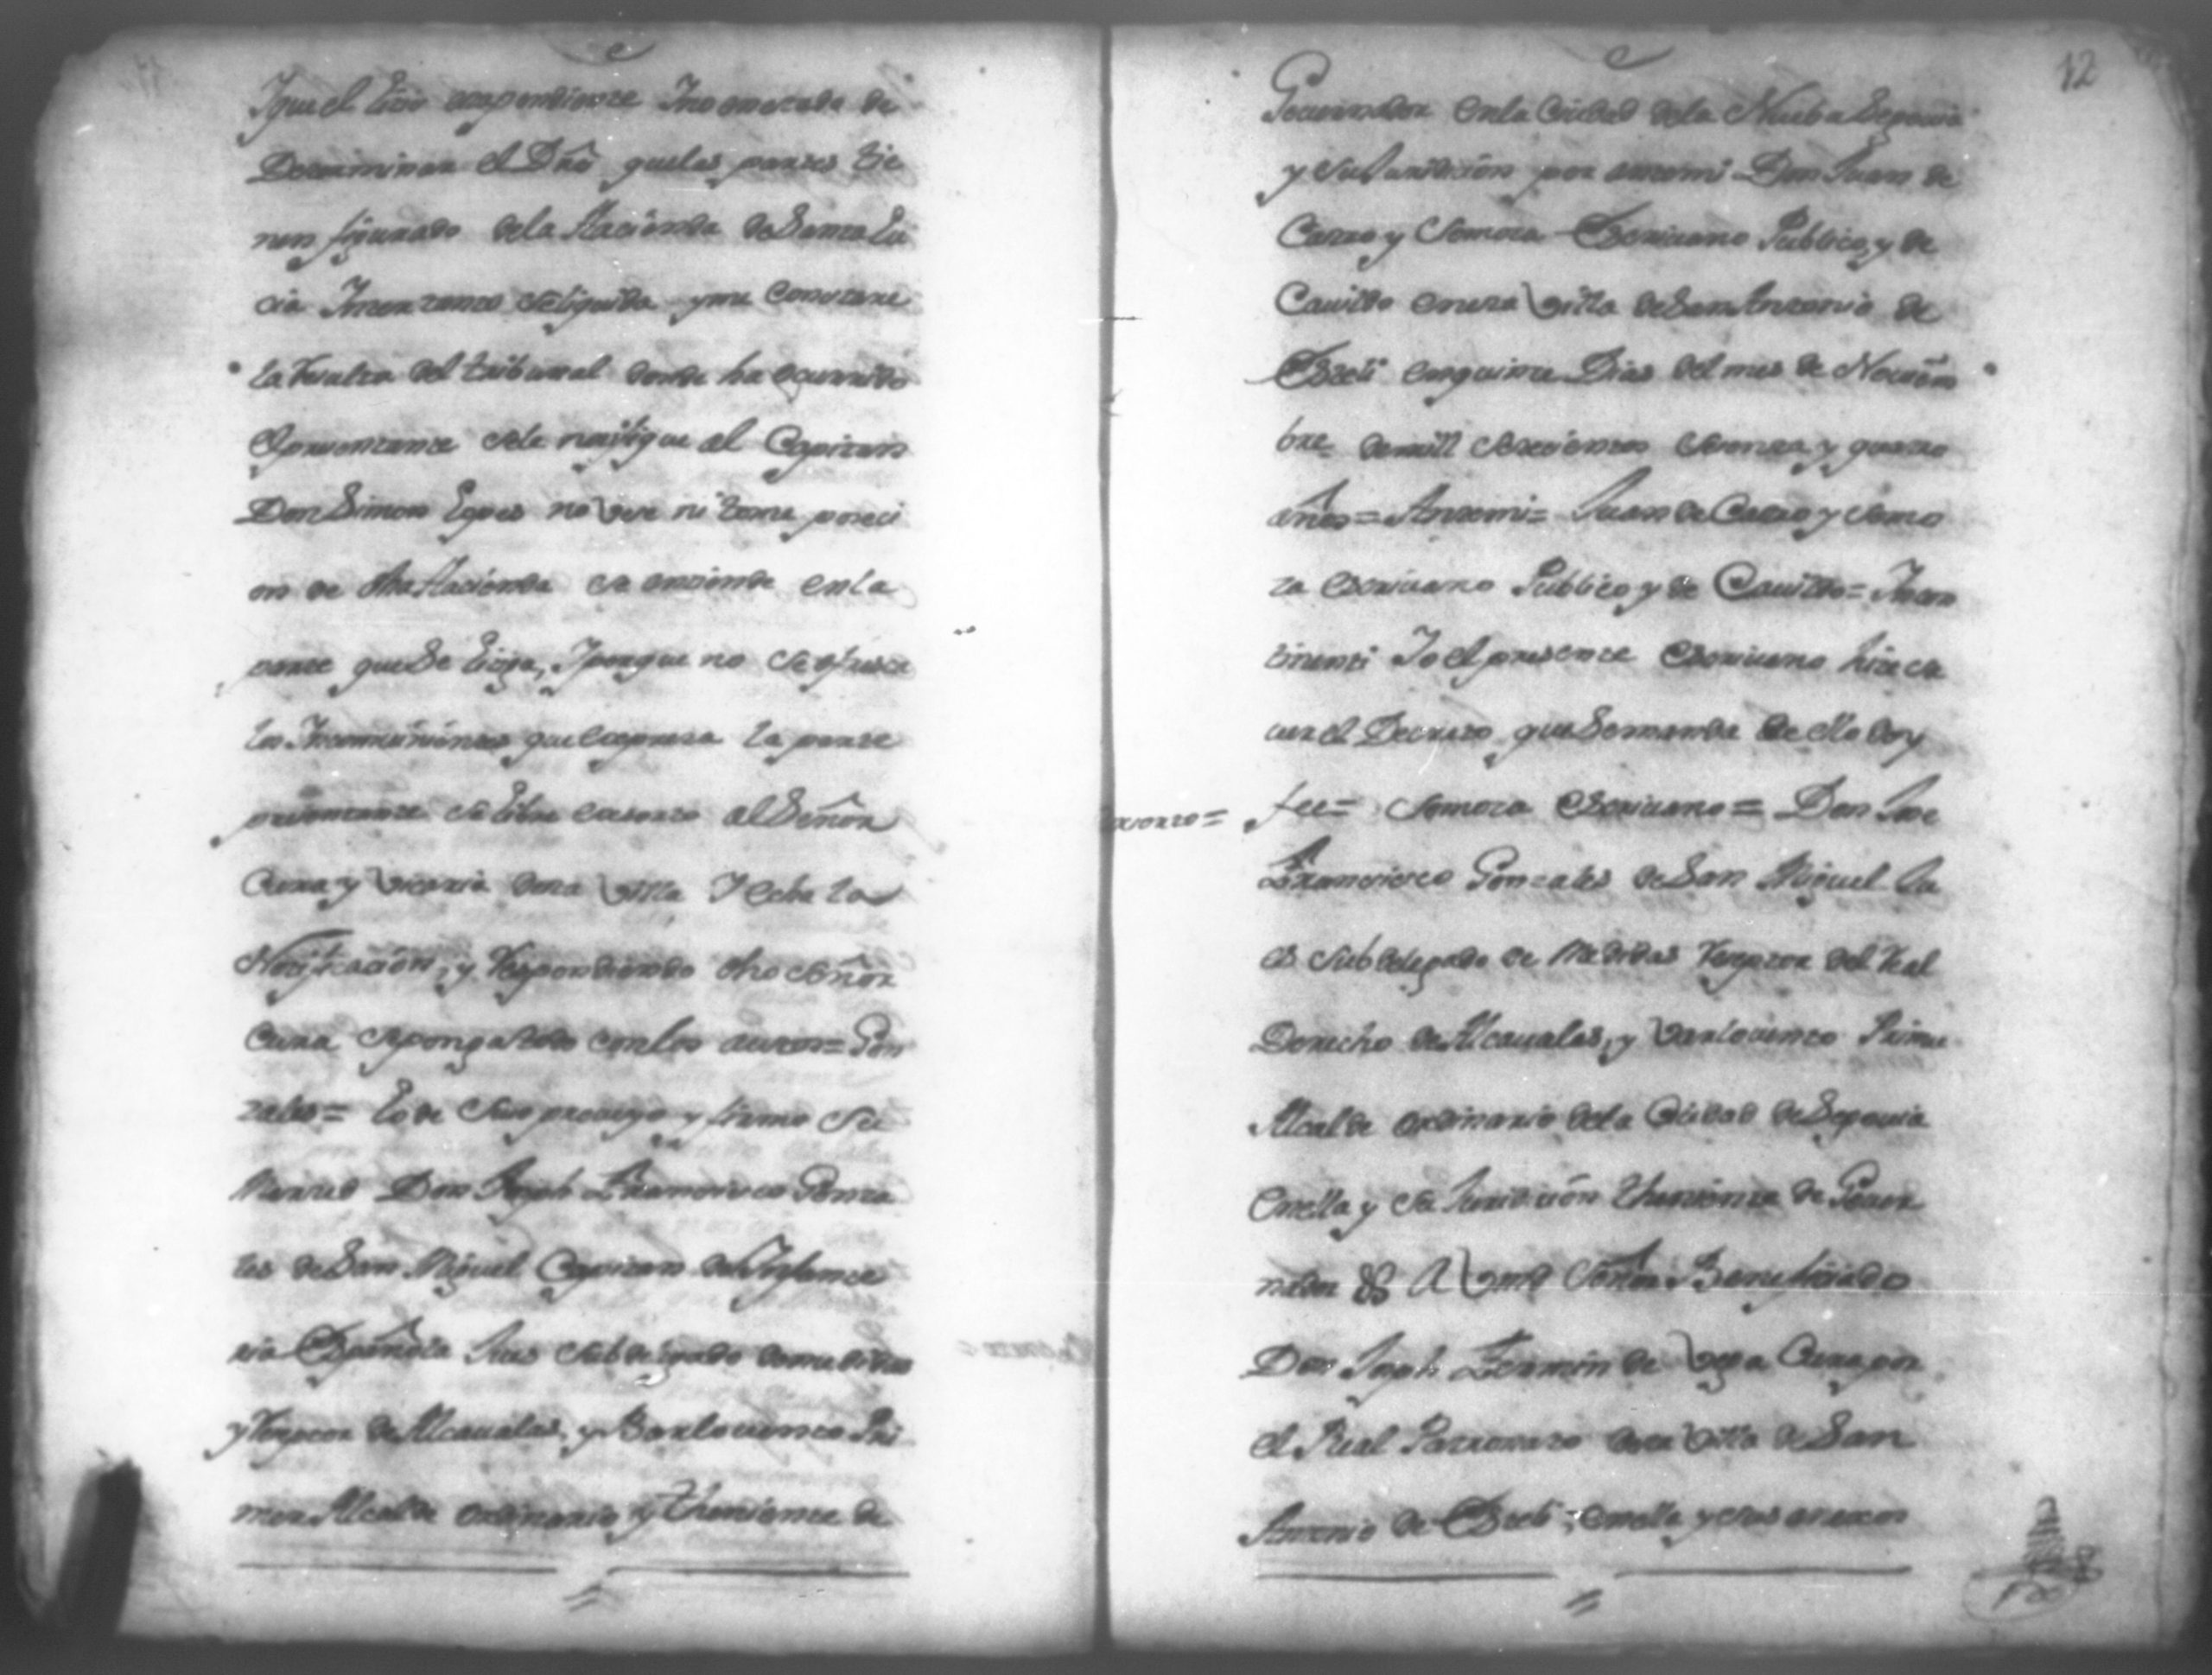 Yque el litis esta pendiente Yno enterada de
Determinar el Dr̃o que las partes tie
nen fijurado dela Hacienda de Santa Lu
cia Ynter tanto se liquida y me conste
la resulta del tribunal donde ha ocurrido
el presentante se le notifique al Capitan
Don Simon Lopes no use ni tome poseci
on de dha Hacienda se entiende en la
parte que se litiga, Y porque no se ofresca
los que expresa la parte
presentante se libre exsorto al Señor
Cura y Vicario desta Villa Y echa la
Notificacion, y Respondiendo dho Señor
Cura se ponga todo con los autos = Gon
zales = Lo de suso proueyo y firmo Su
Merced Don Joseph Francisco Gonza
les de San Miguel Capitan de Ynfante
ria Española Jues Subdelegado de medidas
y Reseptor de Alcaualas, y Barlouento Pri
mer Alcalde ordinario y Theniente de
12
Gouernador en la Ciudad dela Nueba Segouia
y su Juridicion por ante mi Don Juan de
Castro y Somoza Escriuano Publico y de
Cauildo en esta Villa de San Antonio de
Esteli en quinse Dias del mes de Nouiem
bre de mill setesientos setenta y quatro
años = Ante mi = Juan de Castro y Somo
za escriuano Publico y de Cauildo = Yncon
tinenti Yo el presente escriuano hise sa
uer el Decreto que se manda de ello doy
exsorto =
fee = Somoza escriuano = Don Jose
Francisco Gonzales de San Miguel Ju
es subdelegado de Medidas Reseptor del Real
Derecho de Alcaualas, y Varlouento Primer
Alcalde ordinario dela Ciudad de Segouia
en ella y su Juridicion Theniente de Gouer
nador A Vmd Señor Beneficiado
Don Joseph Fermin de Vega Cura por
el Real Patronato desta Villa de San
Antonio de Esteli, en ella y sus anexos